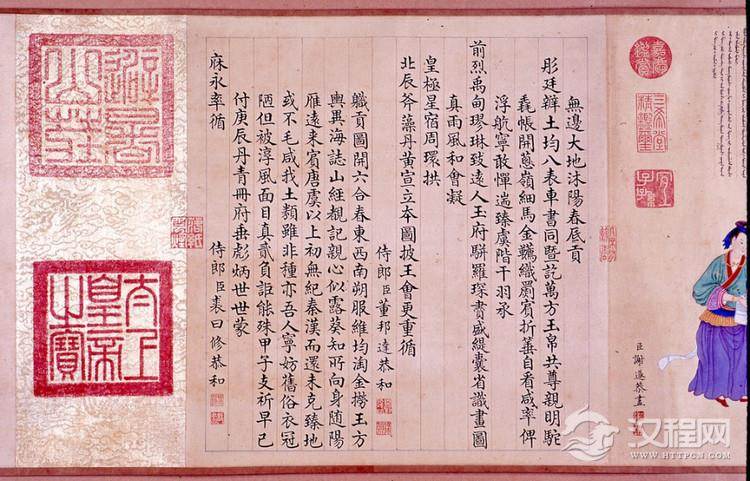 嘉慶鑑賞
三希堂精鑑璽
宜子孫
臣謝遂恭畫
無邊大地沐陽春貢
彤廷辨土均八表車書同暨訖萬方玉帛共尊親明駝
毳帳開蔥嶺細馬金羈織罽賓折箠自看咸率俾
浮航寧敢憚遄臻虞階干羽承
前烈禹甸璆琳致遠人玉府駢羅琛賮盛緹囊省識畫圖
真雨風和會凝
皇極星宿周環拱
北辰斧藻丹黃宣立本圖披王會更重循
侍郎臣董邦達恭和
職貢圖開六合春東西南朔服維均淘金撈玉方
輿異海誌山經覩記親心似露葵知所向身隨陽
雁遠來賓唐虞以上初無紀秦漢而還未克臻地
或不毛咸我土類雖非種亦吾人寧妨舊俗衣冠
陋但被淳風面目真貳負詎能殊甲子支祈早已
付庚辰丹青冊府垂彪炳世世蒙
庥永率循
侍郎臣裘曰修恭和
避暑山莊
太上皇帝之寶
汉程网
WWW.HTTPCN.COM